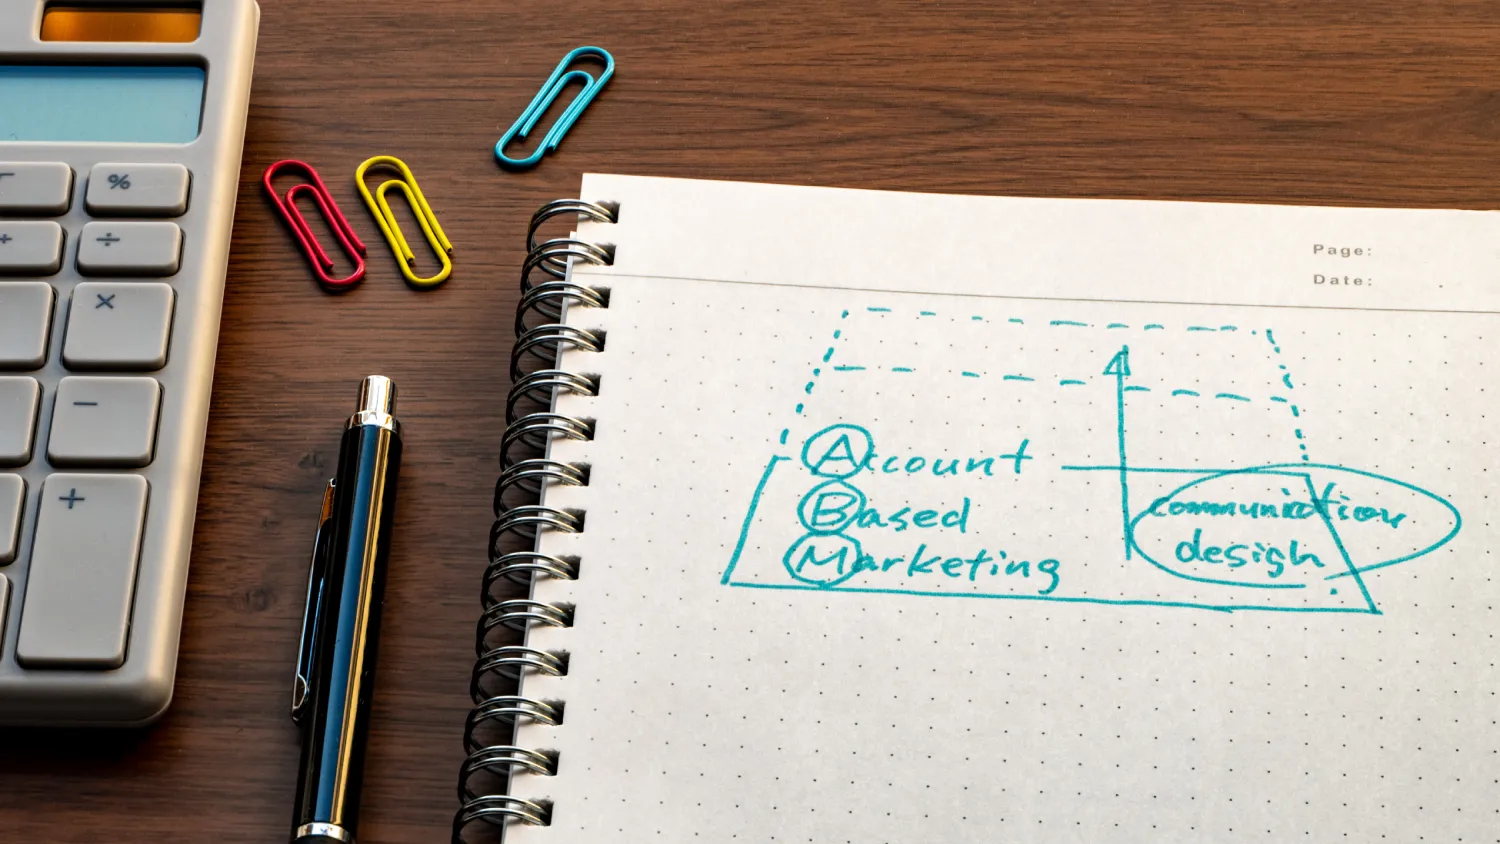 %
÷
×
−
+
Page:
Date:
Account
Based
Marketing
communication
design